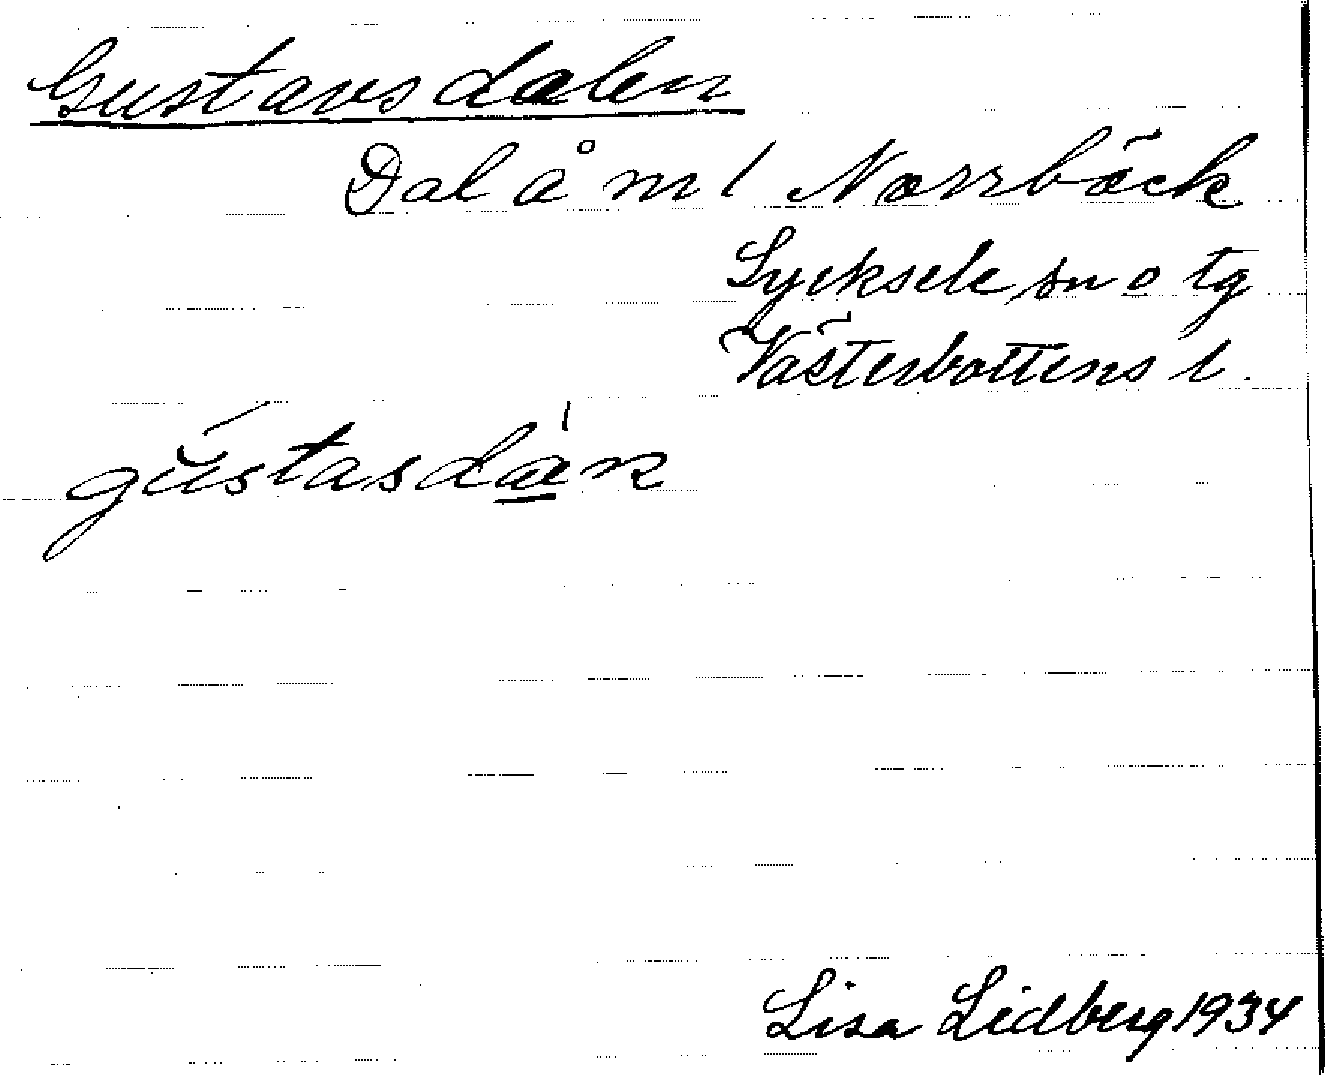 Gustavsdalen
Dal å m l Norrbäck
Lycksele sn o tg
Västerbottens l.
gústasdàn
Lisa Lidberg 1934